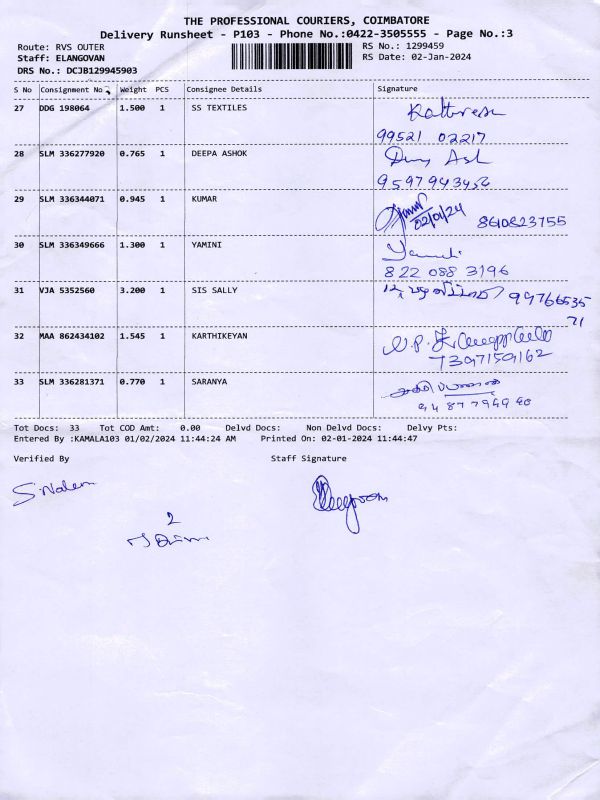 THE PROFESSIONAL COURIERS, COIMBATORE
Delivery Runsheet - P103 - Phone No.:0422-3505555 - Page No.:3
Route: RVS OUTER RS No.: 1299459
Staff: ELANGOVAN RS Date: 02-Jan-2024
DRS No.: DCJB129945903
S No Consignment No. Weight PCS Consignee Details Signature
27 DDG 198064 1.500 1 SS TEXTILES
99521 02217
28 SLM 336277920 0.765 1 DEEPA ASHOK
9597943456
29 SLM 336344071 0.945 1 KUMAR
02/01/24 8610823755
30 SLM 336349666 1.300 1 YAMINI
822 088 3196
31 VJA 5352560 3.200 1 SIS SALLY
99766535
71
32 MAA 862434102 1.545 1 KARTHIKEYAN
7397159162
33 SLM 336281371 0.770 1 SARANYA
Tot Docs: 33 Tot COD Amt: 0.00 Delvd Docs: Non Delvd Docs: Delvy Pts:
Entered By :KAMALA103 01/02/2024 11:44:24 AM Printed On: 02-01-2024 11:44:47
Verified By Staff Signature
2